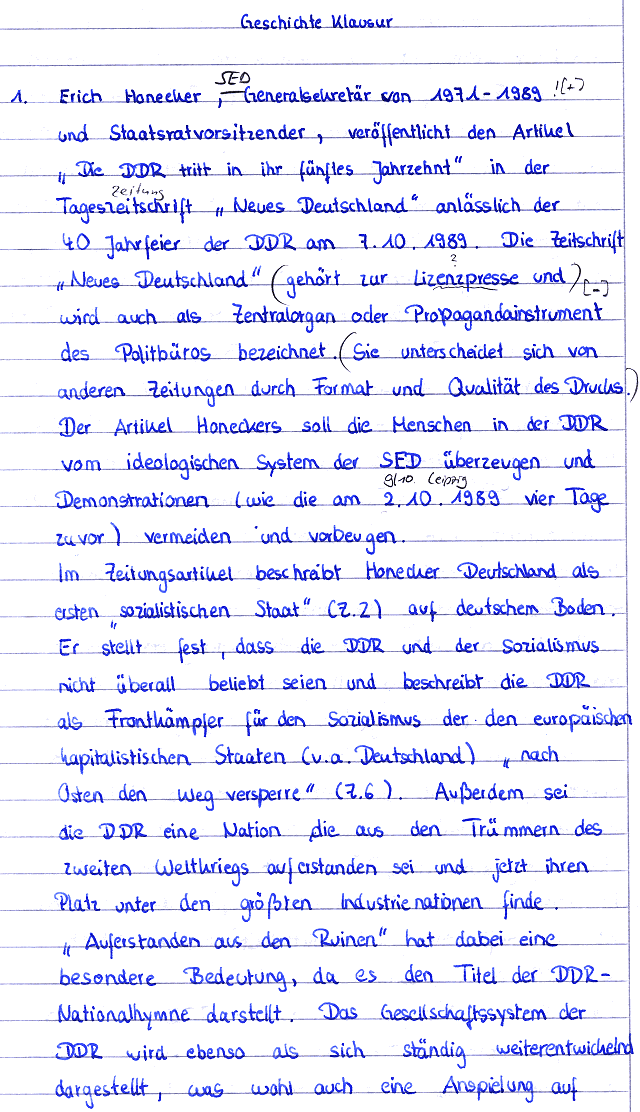 Geschichte Klausur
SED
1. Erich Honecker, Generalsekretär von 1971-1989 !(+)
und Staatsratvorsitzender, veröffentlicht den Artikel
„Die DDR tritt in ihr fünftes Jahrzehnt" in der
Zeitung
Tageszeitschrift „Neues Deutschland" anlässlich der
40 Jahrfeier der DDR am 7.10.1989. Die Zeitschrift
?
„Neues Deutschland" (gehört zur Lizenzpresse und) [-]
wird auch als Zentralorgan oder Propagandainstrument
des Politbüros bezeichnet. (Sie unterscheidet sich von
anderen Zeitungen durch Format und Qualität des Drucks.)
Der Artikel Honeckers soll die Menschen in der DDR
vom ideologischen System der SED überzeugen und
9/10. Leipzig
Demonstrationen (wie die am 2.10.1989 vier Tage
zuvor) vermeiden und vorbeugen.
Im Zeitungsartikel beschreibt Honecker Deutschland als
ersten „sozialistischen Staat" (Z.2) auf deutschem Boden.
Er stellt fest, dass die DDR und der Sozialismus
nicht überall beliebt seien und beschreibt die DDR
als Frontkämpfer für den Sozialismus der den europäischen
kapitalistischen Staaten (v.a. Deutschland) „nach
Osten den Weg versperre" (Z.6). Außerdem sei
die DDR eine Nation die aus den Trümmern des
zweiten Weltkriegs auferstanden sei und jetzt ihren
Platz unter den größten Industrienationen finde.
„Auferstanden aus den Ruinen" hat dabei eine
besondere Bedeutung, da es den Titel der DDR-
Nationalhymne darstellt. Das Gesellschaftssystem der
DDR wird ebenso als sich ständig weiterentwickelnd
dargestellt, was wohl auch eine Anspielung auf